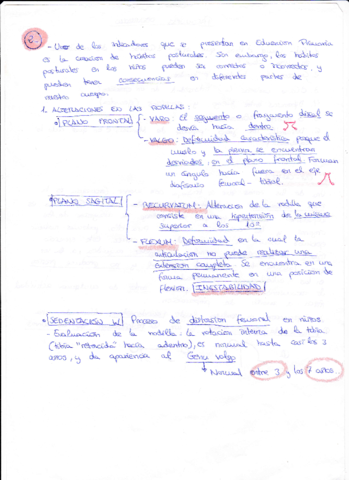 8.-
- Uno de los indicadores que se presentan en Educación Primaria
es la creación de hábitos posturales. Sin embargo, los hábitos
posturales en los niños pueden ser correctos o incorrectos, y
pueden tener consecuencias en diferentes partes de
nuestro cuerpo.
1. ALTERACIONES EN LAS RODILLAS:
PLANO FRONTAL - VARO: El segmento o fragmento distal se
desvía hacia dentro.
- VALGO: Deformidad característica porque el
muslo y la pierna se encuentran
desviados en el plano frontal. Forman
un ángulo hacia fuera en el eje
diafisario femoral-tibial.
PLANO SAGITAL - RECURVATUM: Alteración de la rodilla que
consiste en una hipertensión de la misma
superior a los 10º
- FLEXUM: Deformidad en la cual la
articulación no puede realizar una
extensión completa. Se encuentra en una
forma permanente en una posición de
flexión. INESTABILIDAD
SEDENTACIÓN W Proceso de distorsion femoral en niños.
- Evaluación de la rodilla: la rotación interna de la tibia
(tibia "retorcida" hacia adentro), es normal hasta casi los 3
años, y da apariencia al Genu valgo
Normal entre 3 y los 7 años.